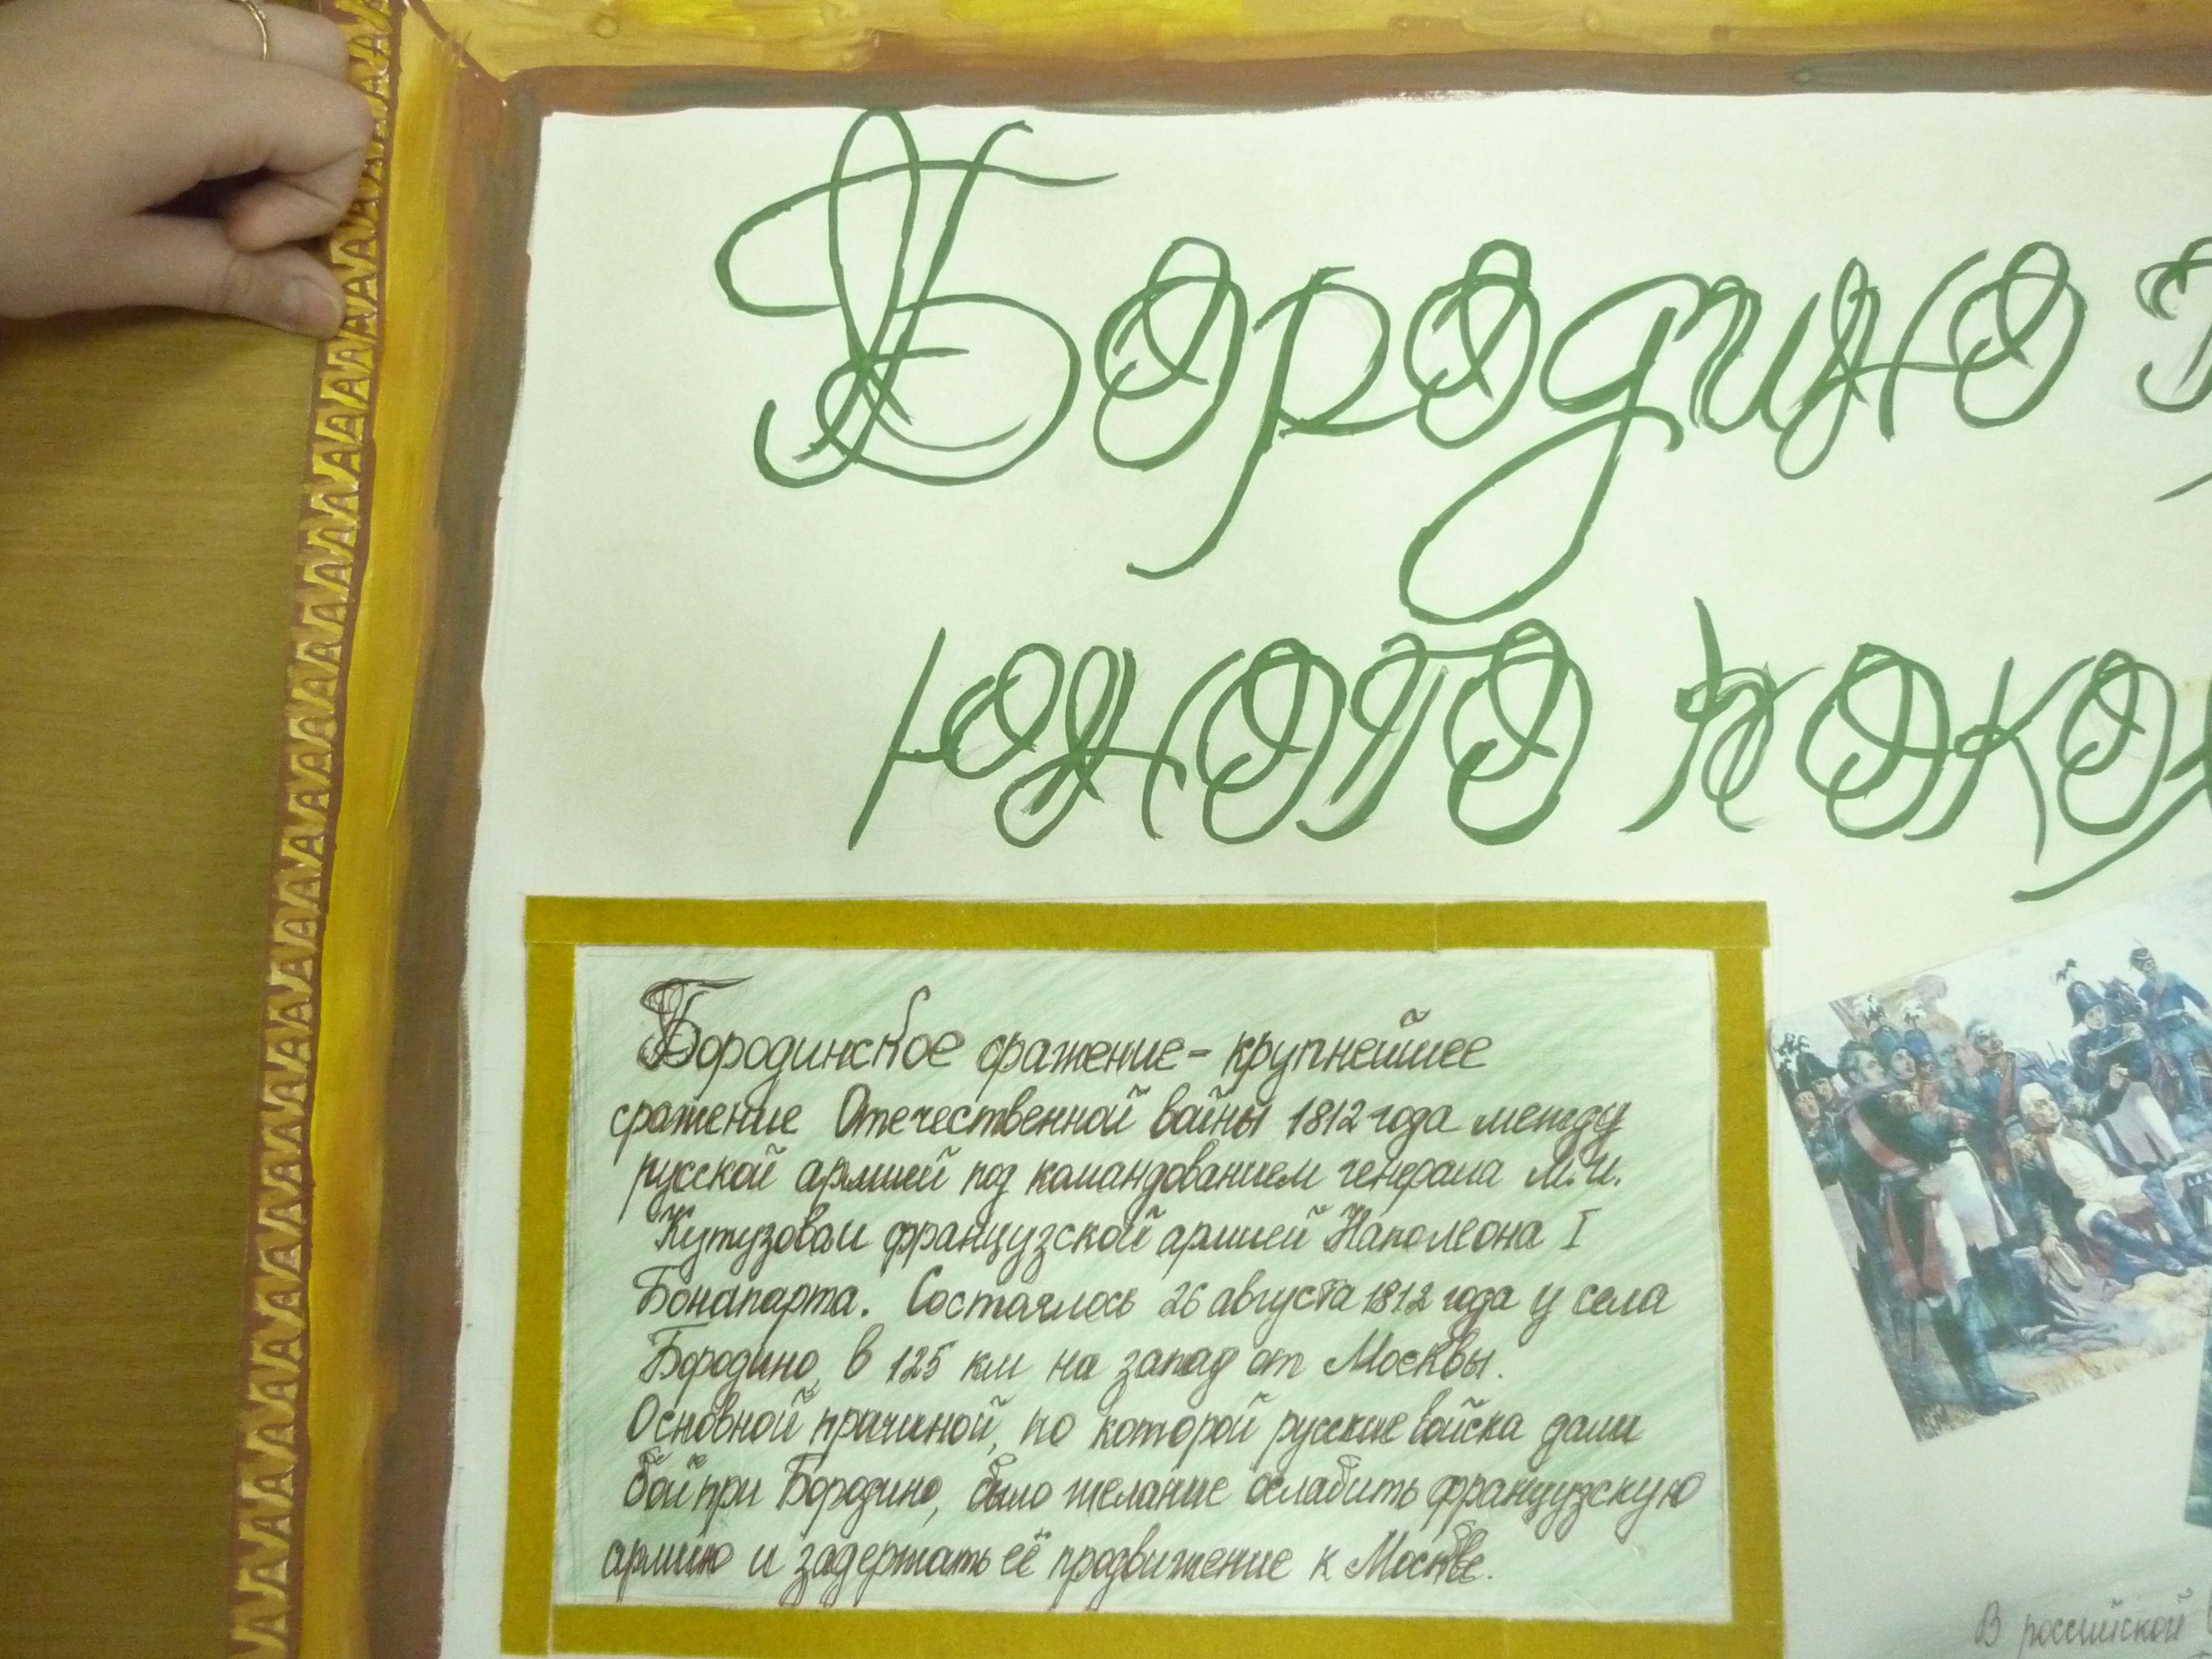 Бородино
юного
Бородинское сражение - крупнейшее
сражение Отечественной войны 1812 года между
русской армией под командованием генерала М.И.
Кутузова и французской армией Наполеона I
Бонапарта. Состоялось 26 августа 1812 года у села
Бородино, в 125 км на запад от Москвы.
Основной причиной, по которой русские войска дали
бой при Бородино, было желание ослабить французскую
армию и задержать её продвижение к Москве.
В российской